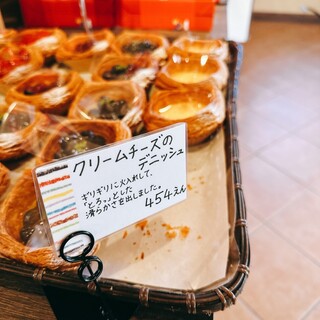 クリームチーズの
デニッシュ
ギリギリに火入れして、
「とろ〜」とした
滑らかさを出しました。
454えん